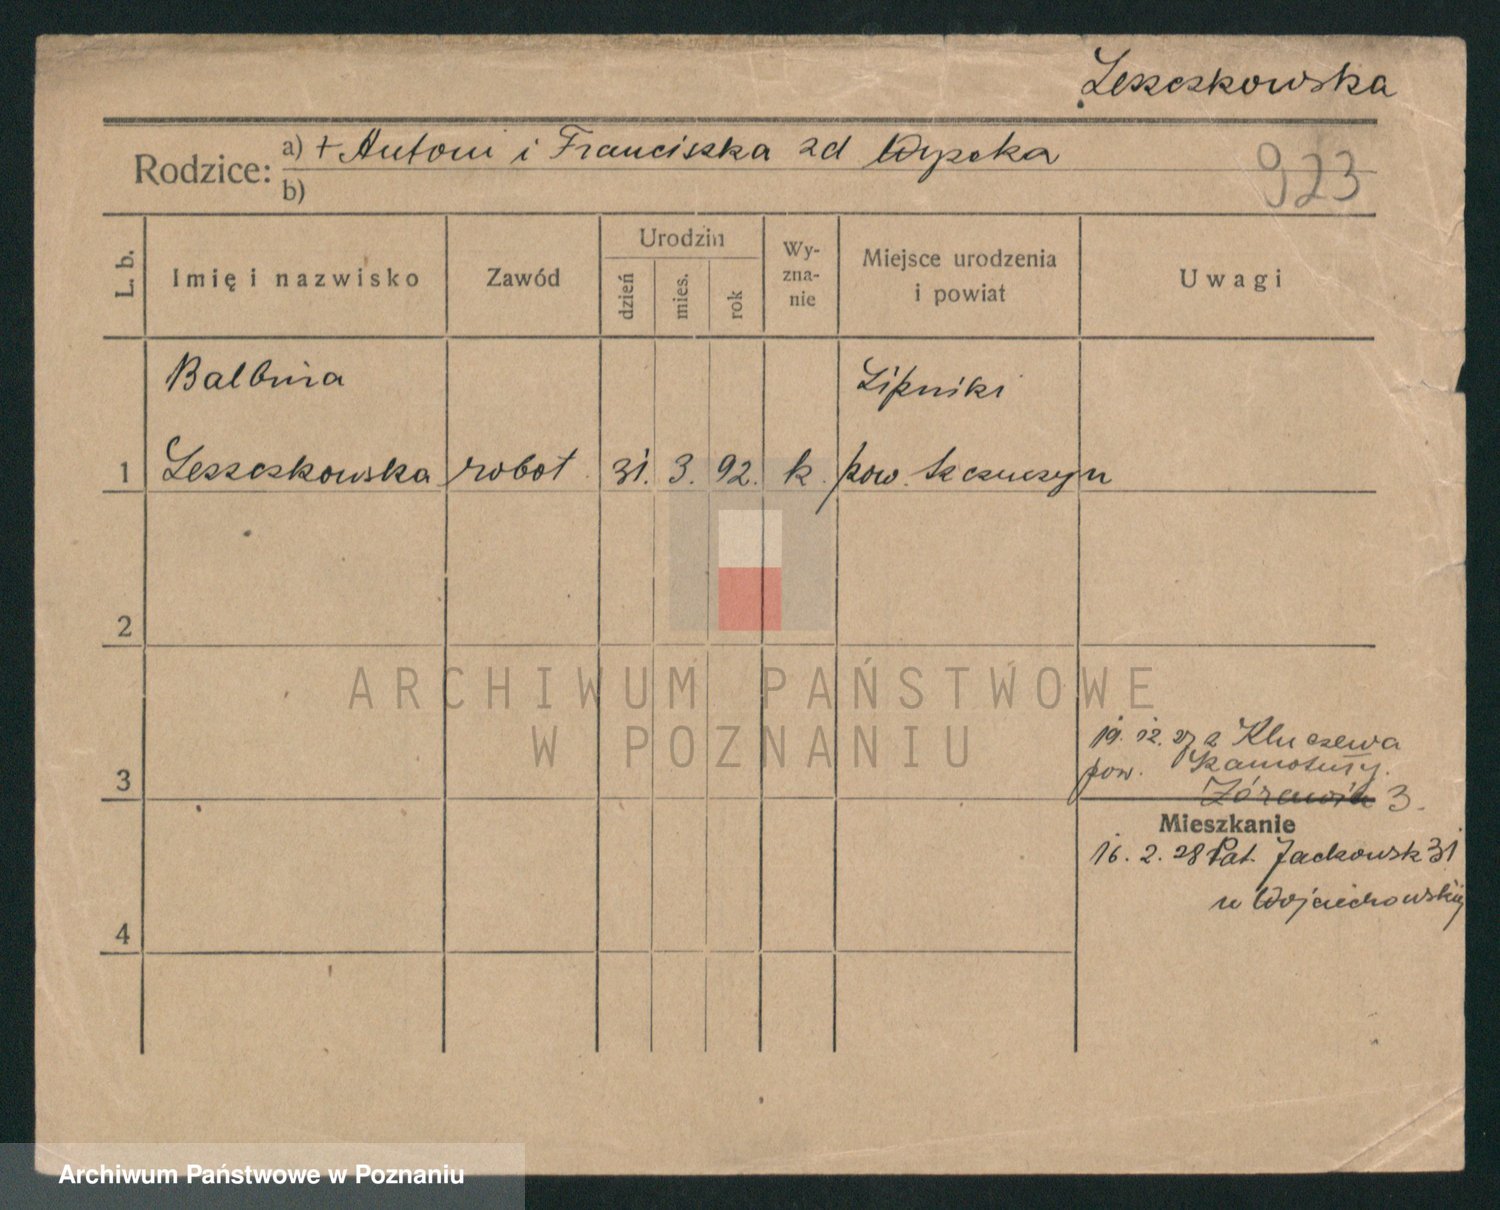 Leszczkowska
Rodzice: a) + Antoni i Franciszka zd Wypcka
923
b)
L. b.
Imię i nazwisko
Zawód
Urodzin
dzień
mies.
rok
Wy-
zna-
nie
Miejsce urodzenia
i powiat
Uwagi
Balbina
Lipniki
1 Leszczkowska robot. 31. 3. 92. k. pow. Szczuczyn
2
ARCHIWUM PAŃSTWOWE
W POZNANIU
19. 12. 27 z Kluczewa
pow. Szamotuły.
3
Żórawia 3.
Mieszkanie
16. 2. 28 Pat. Jackowsk 31
u Wojciechowskiej
4
Archiwum Państwowe w Poznaniu